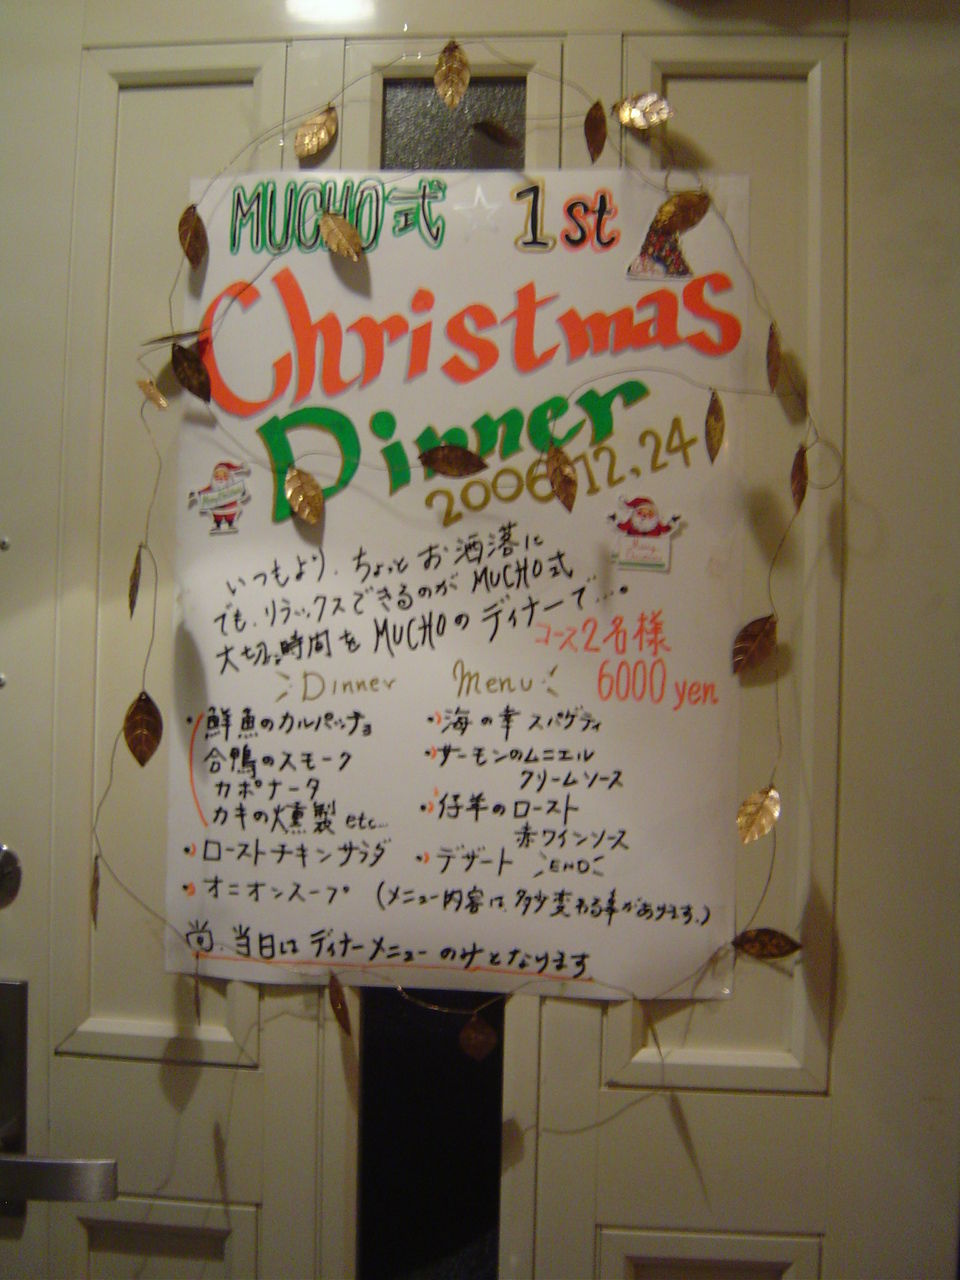 MUCHO式 ☆ 1st
Christmas
Dinner
2006.12.24
いつもより、ちょっとお洒落に
でも、リラックスできるのがMUCHO式
大切な時間をMUCHOのディナーで…。
コース2名様
6000 yen
Dinner Menu
・鮮魚のカルパッチョ
合鴨のスモーク
カポナータ
カキの燻製 etc...
・ローストチキンサラダ
・オニオンスープ
・海の幸スパゲティ
・サーモンのムニエル
クリームソース
・仔羊のロースト
赤ワインソース
・デザート END
(メニュー内容は、多少変わる事があります。)
当日はディナーメニューのみとなります